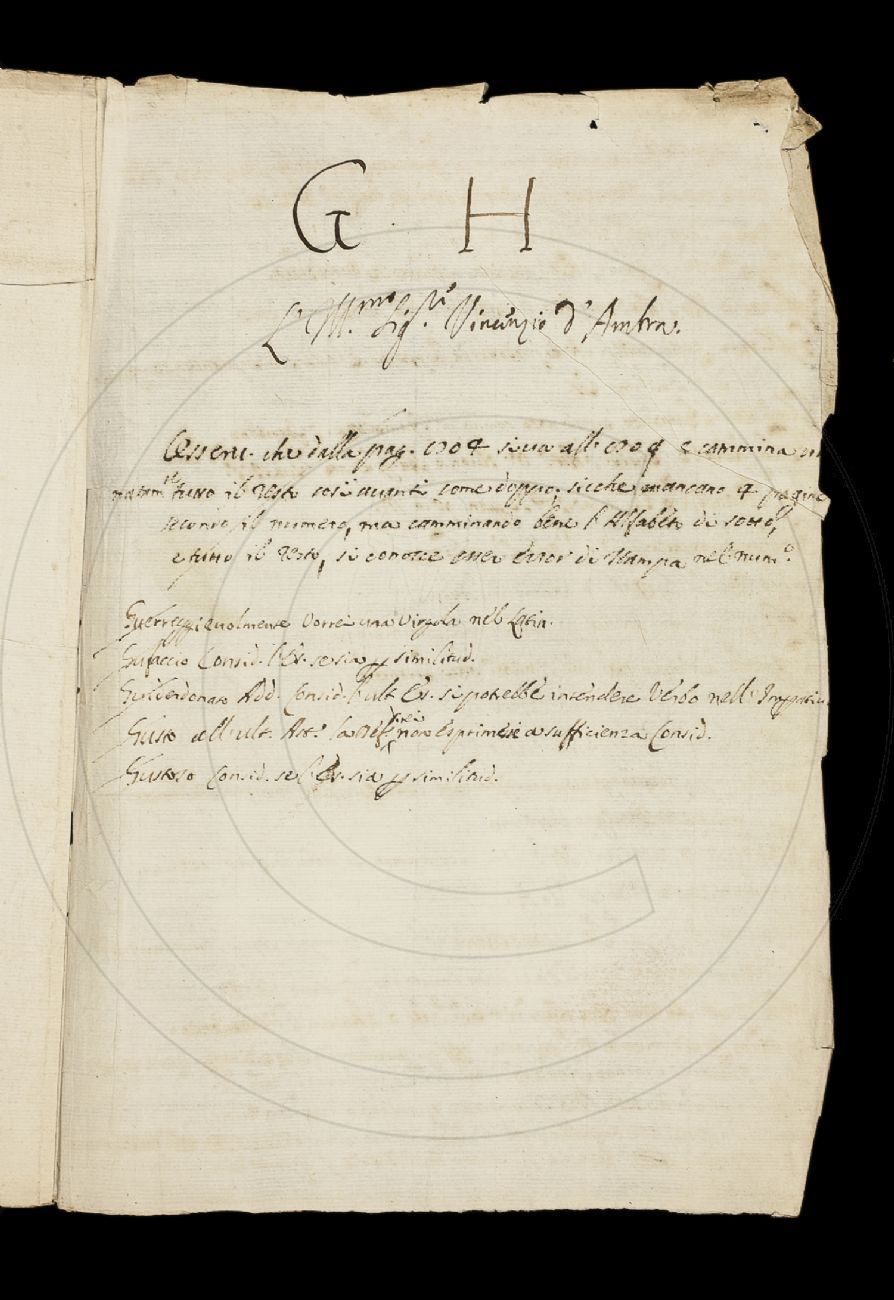 G. H
L'Ill.mo Sig.re Vincenzio d'Ambra.
Osserv. che dalla pag. 1704 si va all. 1709 e cammina
tutto il resto così avanti come doppo, sicche mancano 4 pagine
secondo il numero, ma camminando bene l'Alfabeto di sotto,
e tutto il resto, si conosce esser error di stampa nel num.o
Guerreggievolmente Vorrei una virgola nel Latin.
Gufaccio Consid. l'Es. se sia p similitud.
Guiderdonato Add. Consid. l'ult. Es. si potrebbe intendere Verbo nell'
Gusto all'ult. Art.o la def. non esprimesse a sufficienza Consid.
Gustoso Consid. se l'Es. sia p similitud.